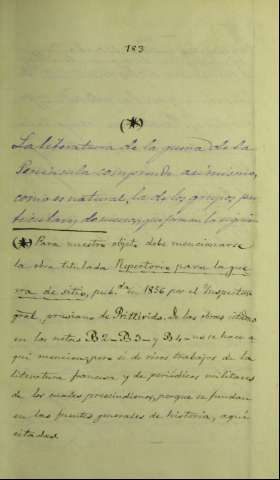 183
(*)
La literatura de la guerra de la
Península comprende asimismo,
como es natural, la de los grupos par
ticulares de sucesos, que forman la región
(*) Para nuestro objeto debe mencionarse
la obra titulada Repertorio para la gue
rra de sitio, pub.da en 1856 por el Inspector
gral. prusiano de Prittwitz. De las obras citadas
en las notas B2 - B3 - y B4 - no se hace a
quí mención, pero si de varios trabajos de la
literatura francesa y de periódicos militares
de los cuales prescindimos, porque se fundan
en las fuentes generales de historia, aquí
citadas